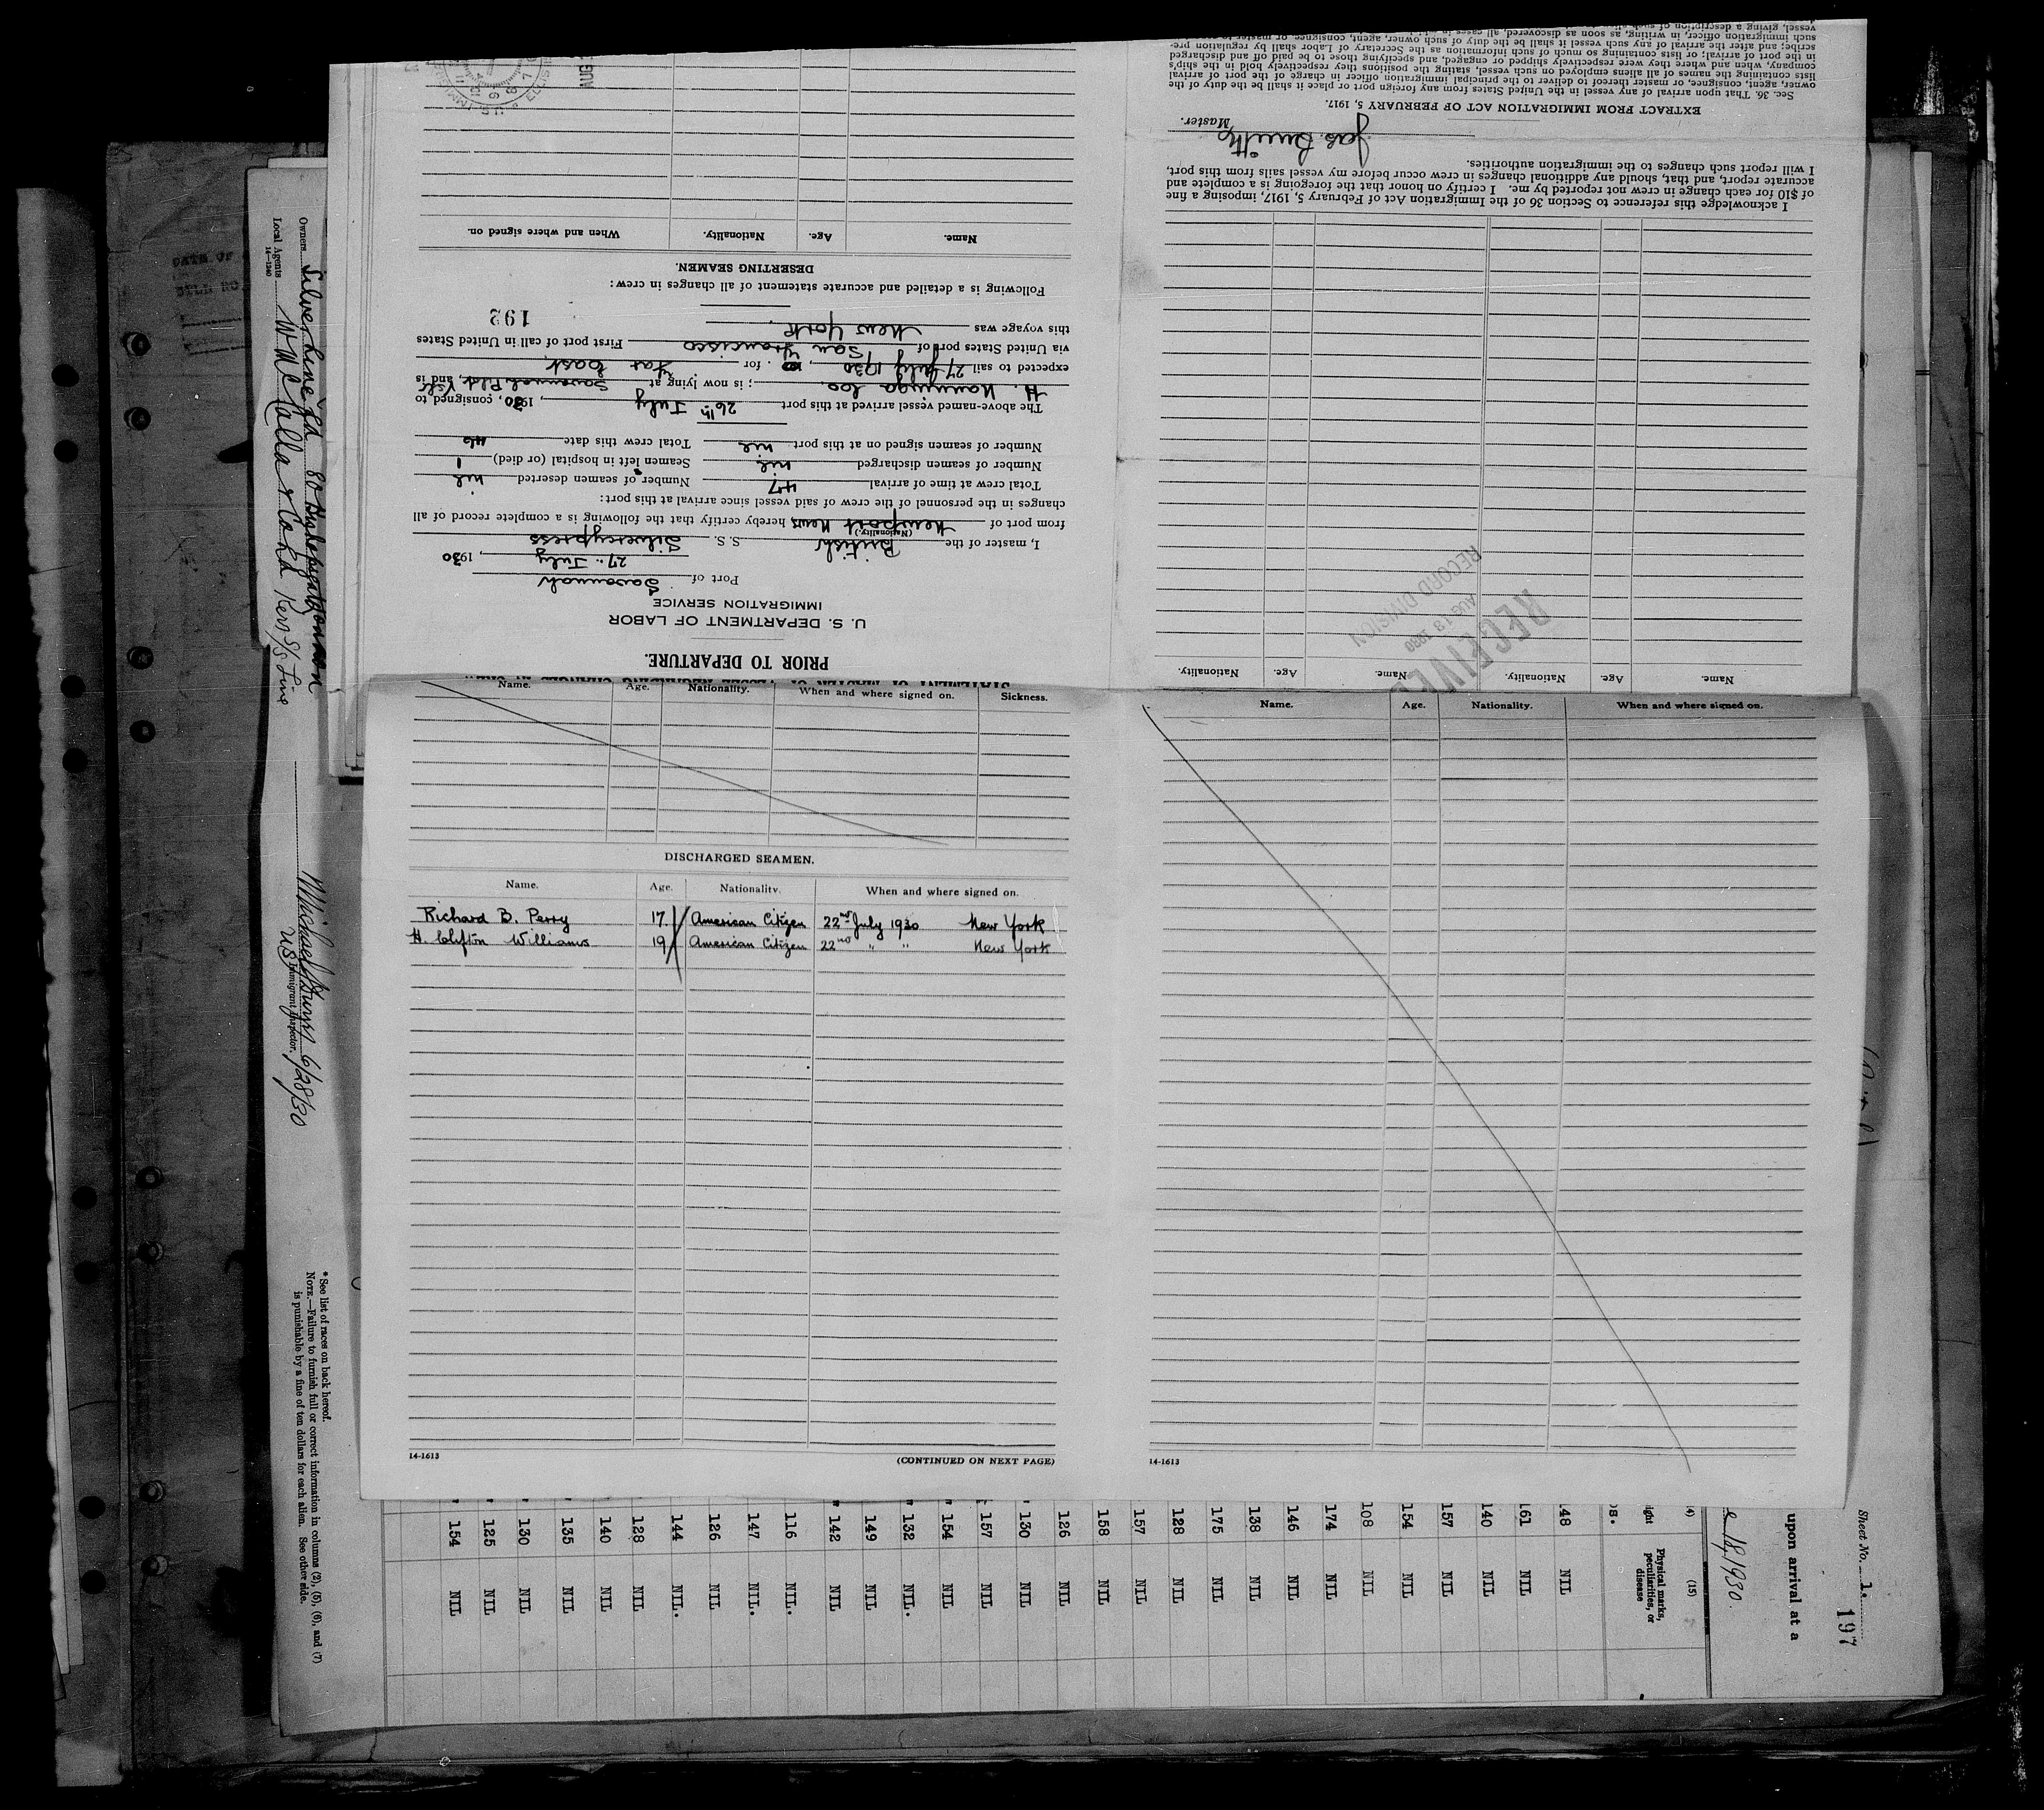 DATE OF
Owners Silver Line Ltd
Local Agents
14—1240
Kerr S/S Line
6/28/30
Immigrant Inspector.
* See list of races on back hereof.
NOTE.—Failure to furnish full or correct information in columns (2), (5), (6), and (7)
is punishable by a fine of ten dollars for each alien. See other side.
PRIOR TO DEPARTURE.
U. S. DEPARTMENT OF LABOR
IMMIGRATION SERVICE
Port of Savannah
27 July, 1930
I, master of the British S. S. Silvercypress
(Nationality.)
from port of Newport News hereby certify that the following is a complete record of all
changes in the personnel of the crew of said vessel since arrival at this port:
Total crew at time of arrival 47 Number of seamen deserted nil
Number of seamen discharged nil Seamen left in hospital (or died) 1
Number of seamen signed on at this port nil Total crew this date 46
The above-named vessel arrived at this port 26th July, 1930, consigned to
; is now lying at , and is
expected to sail 27 July 1930, for Far East
via United States port of San Francisco First port of call in United States
this voyage was New York
192
Following is a detailed and accurate statement of all changes in crew:
DESERTING SEAMEN.
Name. Age. Nationality. When and where signed on.
Name. Age. Nationality. Name. Age. Nationality.
RECEIVED
AUG 13 1930
RECORD DIVISION
I acknowledge this reference to Section 36 of the Immigration Act of February 5, 1917, imposing a fine
of $10 for each change in crew not reported by me. I certify on honor that the foregoing is a complete and
accurate report, and that, should any additional changes in crew occur before my vessel sails from this port,
I will report such changes to the immigration authorities.
Master.
EXTRACT FROM IMMIGRATION ACT OF FEBRUARY 5, 1917.
Sec. 36. That upon arrival of any vessel in the United States from any foreign port or place it shall be the duty of the
owner, agent, consignee, or master thereof to deliver to the principal immigration officer in charge of the port of arrival
lists containing the names of all aliens employed on such vessel, stating the positions they respectively hold in the ship's
company, when and where they were respectively shipped or engaged, and specifying those to be paid off and discharged
in the port of arrival; or lists containing so much of such information as the Secretary of Labor shall by regulation pre-
scribe; and after the arrival of any such vessel it shall be the duty of such owner, agent, consignee, or master to
such immigration officer, in writing, as soon as discovered, all cases in
vessel, giving a description of such
Name. Age. Nationality. When and where signed on. Sickness.
DISCHARGED SEAMEN.
Name. Age. Nationality. When and where signed on.
Richard B. Perry 17 American Citizen 22nd July 1930 New York
H. Clifton Williams 19 American Citizen 22nd " " New York
14-1613
(CONTINUED ON NEXT PAGE)
Name. Age. Nationality. When and where signed on.
14-1613
Sheet No. 1.
197
upon arrival at a
18, 1930.
(15)
Physical marks,
peculiarities, or
disease
48 NIL
161 NIL
140 NIL
157 NIL
154 NIL
108 NIL
174 NIL
146 NIL
138 NIL
175 NIL
128 NIL
157 NIL
158 NIL
126 NIL
130 NIL
157 NIL
154 NIL
132 NIL.
149 NIL
142 NIL
116 NIL.
147 NIL.
126 NIL
144 NIL.
128 NIL
140 NIL
135 NIL
130 NIL
125 NIL
154 NIL